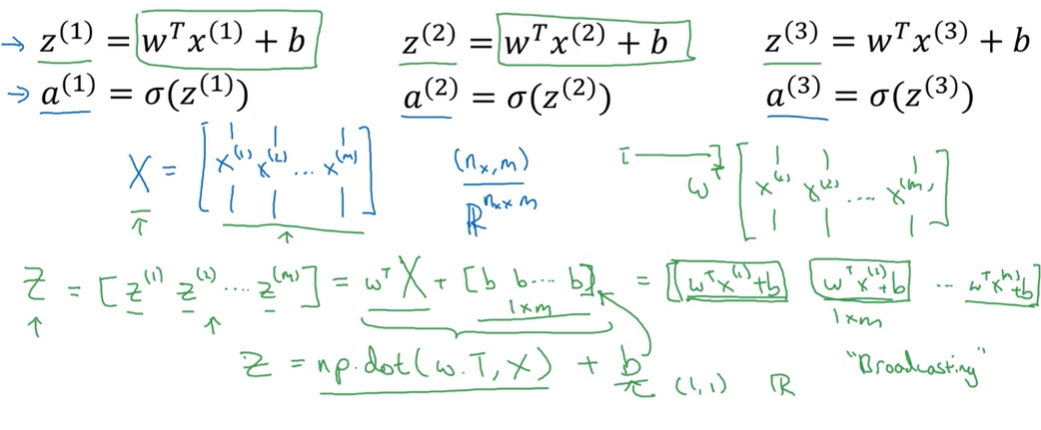 → z^(1) = w^T x^(1) + b z^(2) = w^T x^(2) + b z^(3) = w^T x^(3) + b
→ a^(1) = σ(z^(1)) a^(2) = σ(z^(2)) a^(3) = σ(z^(3))
X = [x^(1) x^(2) ... x^(m)] (n_x, m) w^T [x^(1) x^(2) ... x^(m)]
ℝ^(n_x × m)
Z = [z^(1) z^(2) .... z^(m)] = w^T X + [b b ... b] = [w^T x^(1) + b w^T x^(2) + b ... w^T x^(m) + b]
1×m 1×m
Z = np.dot(w.T, X) + b (1,1) ℝ "Broadcasting"